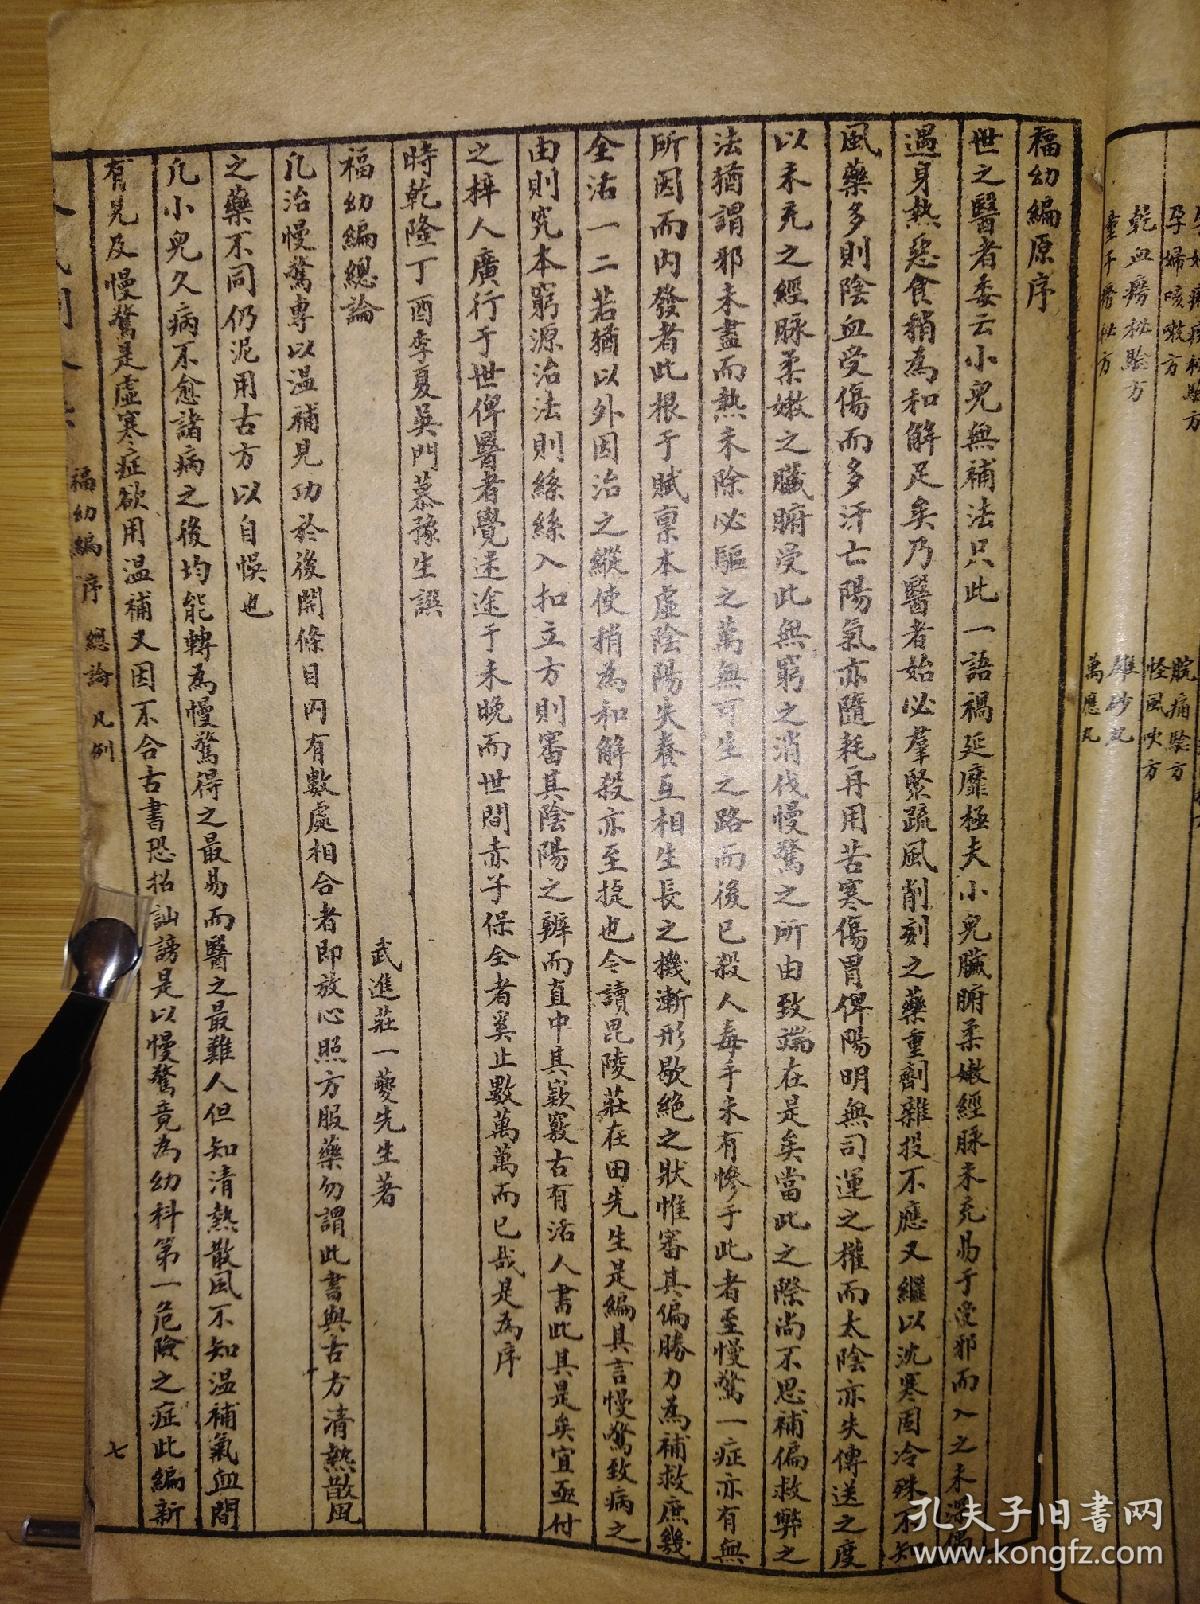 孕婦咳嗽方
乾血癆秘驗方
怪風吹方
萬應丸
福幼編原序
世之醫者委云小兒無補法只此一語禍延靡極夫小兒臟腑柔嫩經脉未充易于受邪而入之未深偶
遇身熱惡食稍為和解足矣乃醫者始必羣緊疏風削刻之藥重劑雜投不應又繼以沈寒固冷殊不知
風藥多則陰血受傷而多汗亡陽氣亦隨耗再用苦寒傷胃俾陽明無司運之權而太陰亦失傳送之度
以未充之經脉柔嫩之臟腑受此無窮之消伐慢驚之所由致端在是矣當此之際尚不思補偏救弊之
法猶謂邪未盡而熱未除必驅之萬無可生之路而後已殺人毒手未有慘于此者至慢驚一症亦有無
所因而內發者此根于賦禀本虛陰陽失養互相生長之機漸形歇絕之狀惟審其偏勝力為補救庶幾
全活一二若猶以外因治之縱使稍為和解殺亦至捷也今讀毘陵莊在田先生是編其言慢驚致病之
由則究本窮源治法則絲絲入扣立方則審其陰陽之辨而直中其窾竅古有活人書此其是矣宜亟付
之梓人廣行于世俾醫者覺迷途于未晚而世間赤子保全者奚止數萬萬而已哉是為序
時乾隆丁酉季夏吳門慕豫生譔
福幼編總論
武進莊一夔先生著
凡治慢驚專以温補見功於後開條目內有數處相合者即放心照方服藥勿謂此書與古方清熱散風
之藥不同仍泥用古方以自悞也
凡小兒久病不愈諸病之後均能轉為慢驚得之最易而醫之最難人但知清熱散風不知温補氣血間
有見及慢驚是虛寒症欲用温補又因不合古書恐招訕謗是以慢驚竟為幼科第一危險之症此編新
福幼編 序 總論 凡例
七
孔夫子旧書网
www.kongfz.com